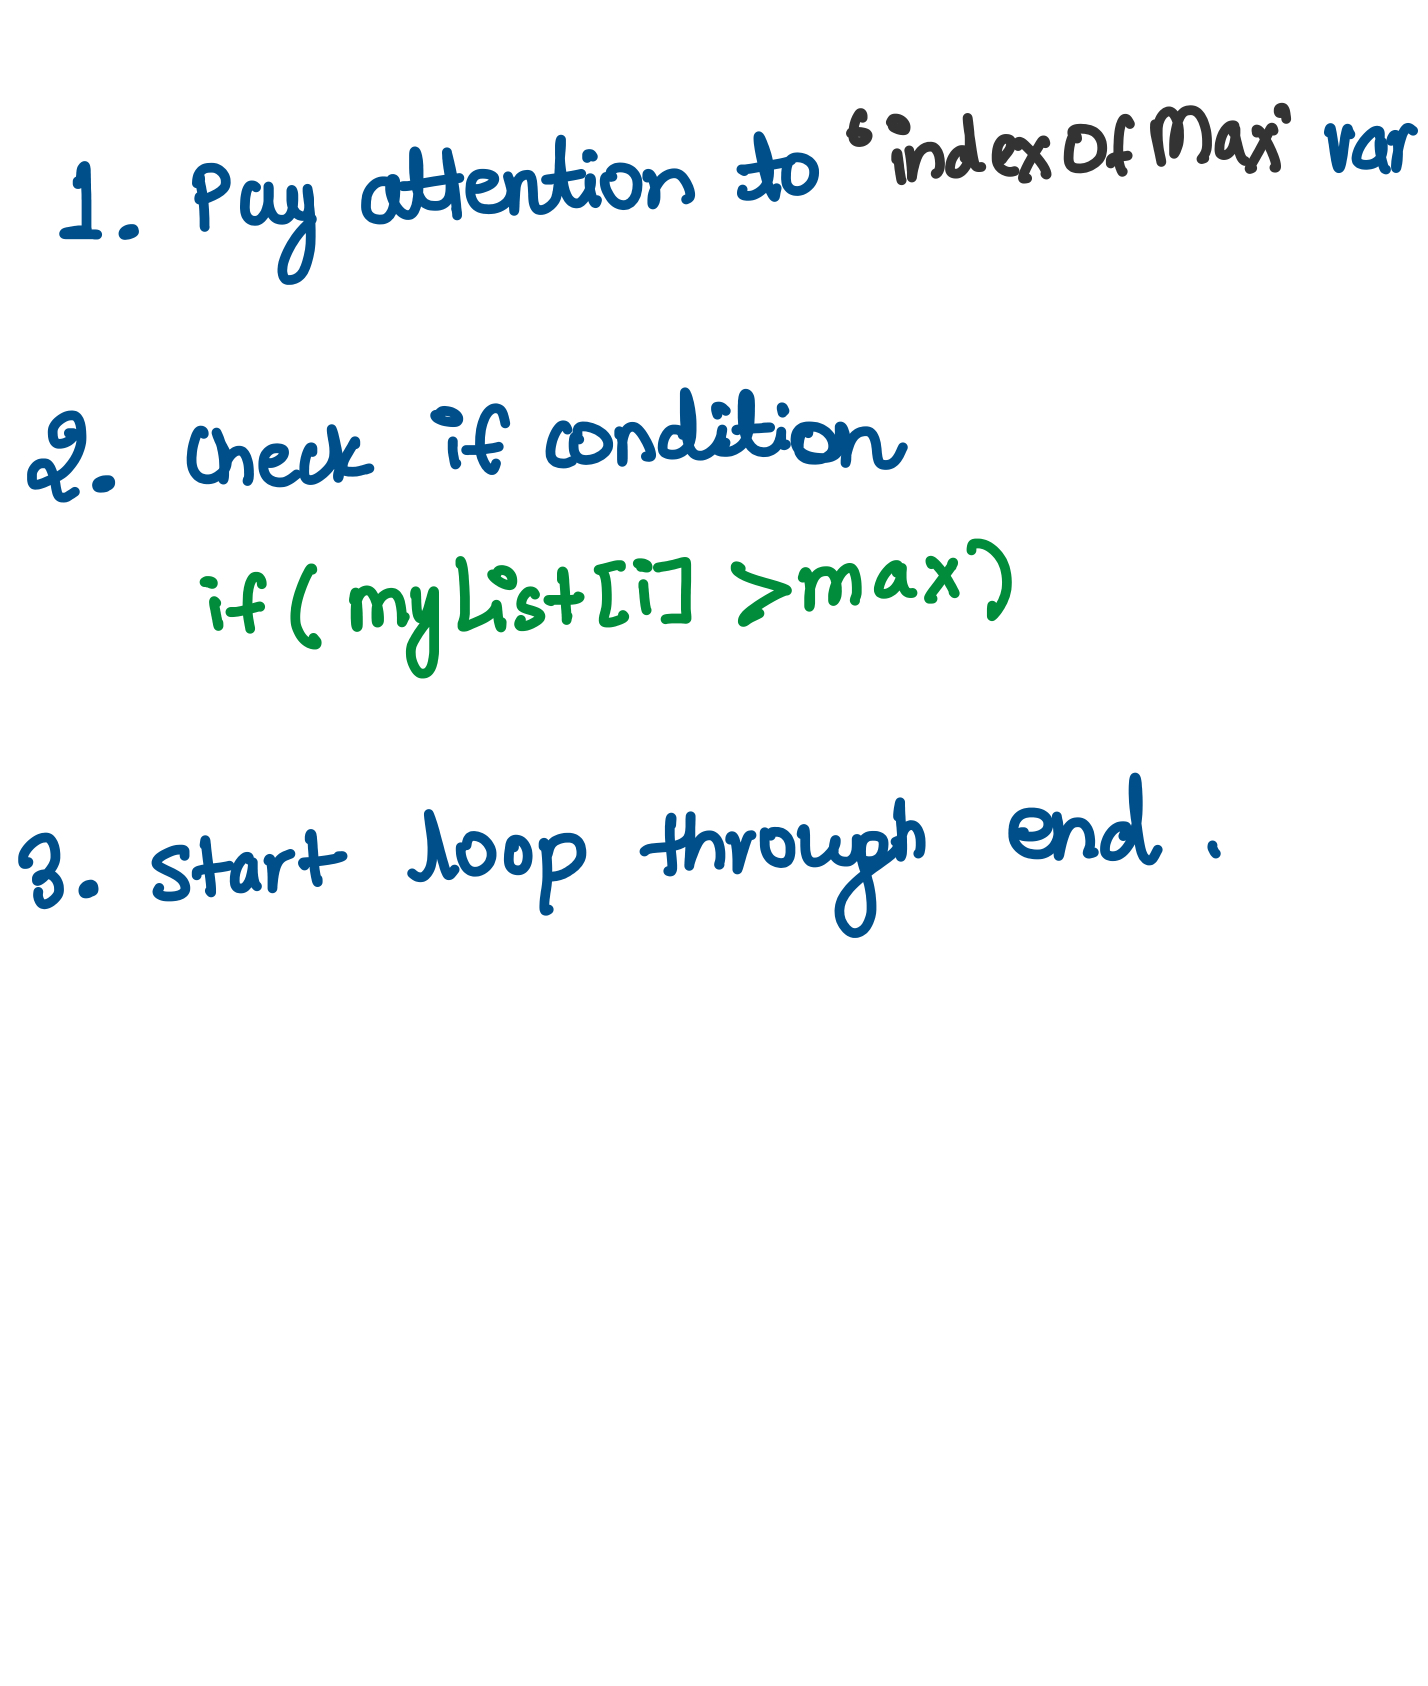 1. Pay attention to 'indexOfMax' var
2. Check if condition
if (myList[i] > max)
3. start loop through end.